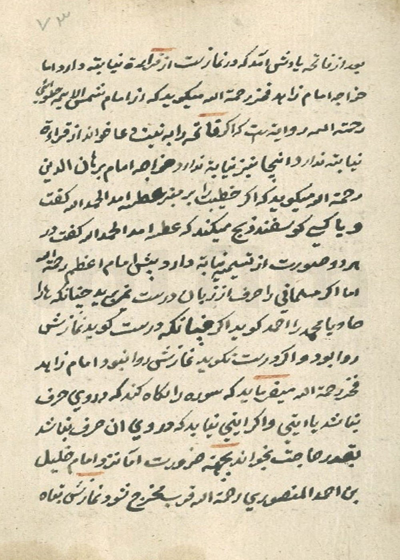 ٧٣
بعد از فاتحه یا وشی آمد که در نماز ست از قراءة نیابته دارد اما
خواجه امام زاهد فخر رحمة الله میکوید که از امام شمس الایمه حلوای
رحمة الله روایة ست که اکر فاتحه را به نیت دعا خواند از قراءة
نیابته ندارد و اینجا نیز نیابة ندارد و خواجه امام برهان الدین
رحمة الله میکوید که اکر خطیب را بر منبر عطسه امد الحمد لله کفت
و یا کسی کوسفند ذبح میکند که عطسه امد الحمد لله کفت در
هر دو صورت از تسمیه نیابة دارد پیش امام اعظم رحمة الله
اما اکر مسلمانی را حرف از زبان درست نمی اید چنانکه
حا و یا محمد را احد کوید اکر چنانکه درست کوید نمازش
روا بود و اکر درست نکوید نمازش روا نبود امام زاهد
فخر رحمة الله میفرماید که سوره را نکاه کند که در وی حرف
نباشد یا ایتی و اکر ایتی نیابد که در وی ان حرف نباشد
بقدر حاجت بخواند بجهة ضرورت اما نزد امام خلیل
بن احمد المنصوری رحمة الله قرب مخرج شود نمازش تباه